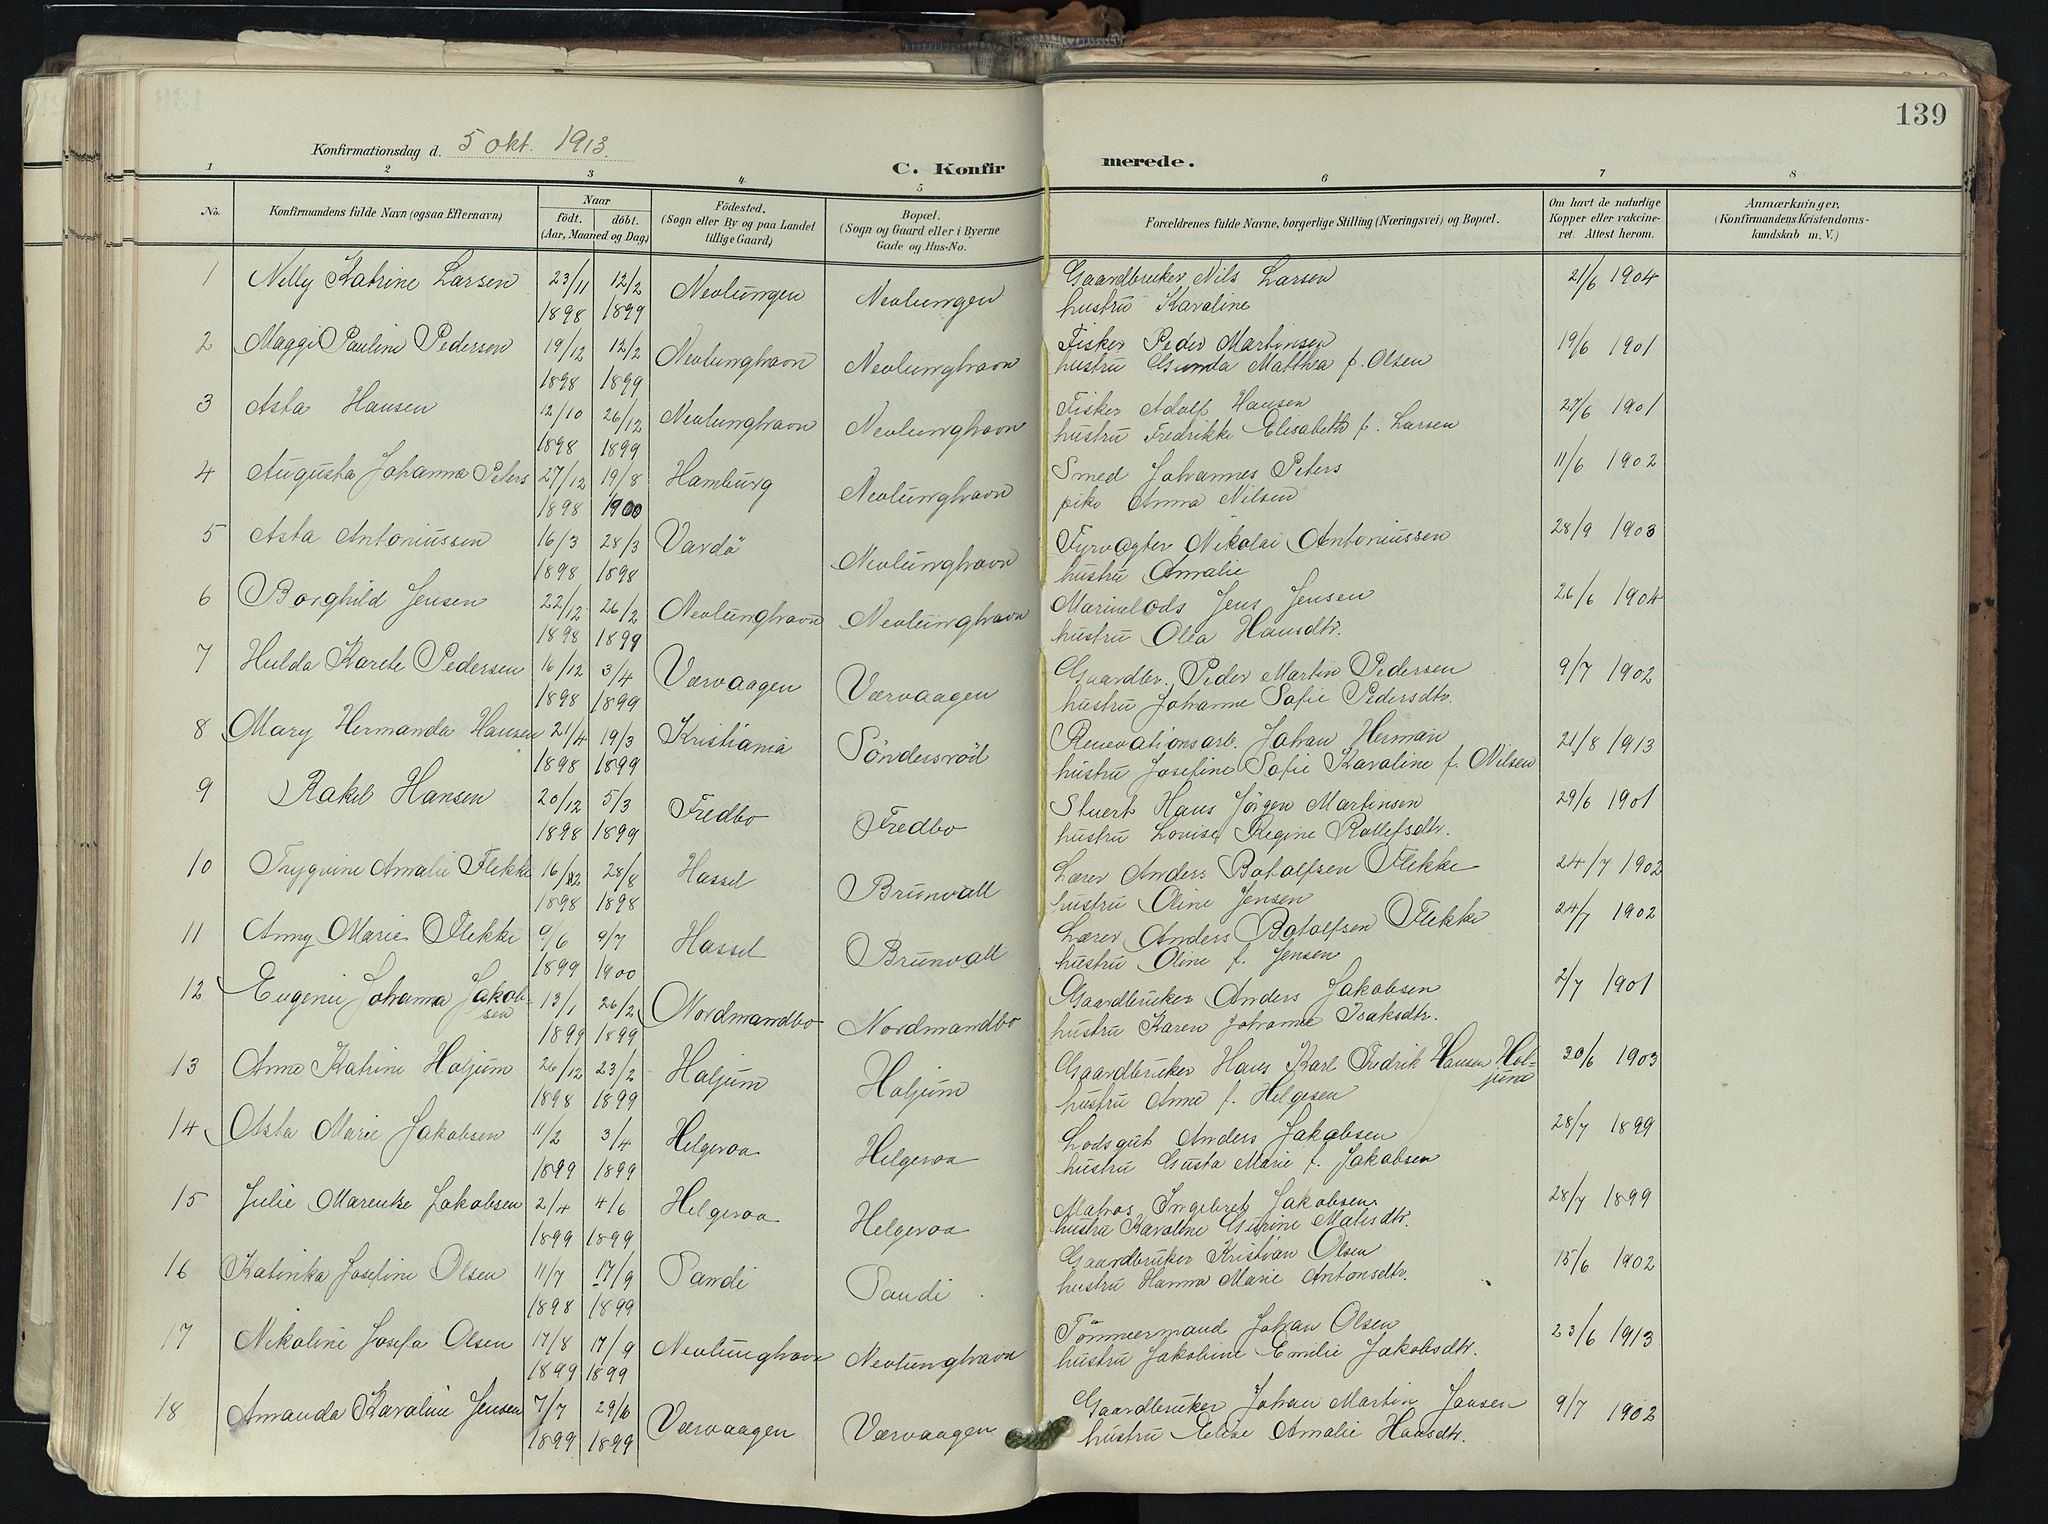 139
Konfirmationsdag d. 5 okt. 1913.
C. Konfir merede.
1 2 3 4 5 6 7 8
No. Konfirmandens fulde Navn (ogsaa Efternavn) Naar födt. döbt. (Aar, Maaned og Dag) Födested. (Sogn eller By og paa Landet tillige Gaard) Bopæl. (Sogn og Gaard eller i Byerne Gade og Hus-No. Forældrenes fulde Navne, borgerlige Stilling (Næringsvei) og Bopæl. Om havt de naturlige Kopper eller vakcineret. Attest herom. Anmærkninger, (Konfirmandens Kristendomskundskab m. V.)
1 Nelly Katrine Larsen 23/11 12/2 Nevlungen Nevlungen Gaardbruker Nils Larsen 21/6 1904
1898 1899 hustru Karaline
2 Maggi Pauline Pedersen 19/12 12/2 Nevlunghavn Nevlunghavn Fisker Peder Martinsen 19/6 1901
1898 1899 hustru Gunda Matthea f. Olsen
3 Asta Hansen 12/10 26/12 Nevlunghavn Nevlunghavn Fisker Adolf Hansen 27/6 1901
1898 1899 hustru Fredrikke Elisabeth f. Larsen
4 Augusta Johanna Peters 27/12 19/8 Hamburg Nevlunghavn Smed Johannes Peters 11/6 1902
1898 1900 pike Anna Nilsen
5 Asta Antoniussen 16/3 28/3 Vardö Nevlunghavn Fyrvagter Nikolai Antoniussen 28/9 1903
1898 1898 hustru Amalie
6 Borghild Jensen 22/12 26/2 Nevlunghavn Nevlunghavn Marinelods Jens Jensen 26/6 1904
1898 1899 hustru Olea Hansdtr.
7 Hulda Karete Pedersen 16/12 3/4 Værvaagen Værvaagen Gaardbr. Peder Martin Pedersen 9/7 1902
1898 1899 hustru Johanne Sofie Pedersdtr.
8 Mary Hermanda Hansen 21/4 19/3 Kristiania Söndersröd Renovationsarb. Johan Herman 21/8 1913
1898 1899 hustru Josefine Sofie Karaline f. Nilsen
9 Rakel Hansen 20/12 5/3 Fredbo Fredbo Stuert Hans Jörgen Martinsen 29/6 1901
1898 1899 hustru Louise Regine Rollefsdtr.
10 Trygvine Amalie Flekke 16/12 28/8 Hassel Brunvall Lærer Anders Botolfsen Flekke 24/7 1902
1898 1898 hustru Oline Jensen
11 Anny Marie Flekke 9/6 9/7 Hassel Brunvall Lærer Anders Botolfsen Flekke 24/7 1902
1899 1900 hustru Oline f. Jensen
12 Eugenie Johanna Jakobsen 13/1 26/2 Nordmandbo Nordmandbo Gaardbruker Anders Jakobsen 2/7 1901
1899 1899 hustru Karen Johanne Isaksdtr.
13 Anne Katrine Holjum 26/12 23/2 Holjum Holjum Gaardbruker Hans Karl Fredrik Hansen Holjum 30/6 1903
1898 1899 hustru Anne f. Helgesen
14 Asta Marie Jakobsen 11/2 3/4 Helgeroa Helgeroa Lodsgut Anders Jakobsen 28/7 1899
1899 1899 hustru Gusta Marie f. Jakobsen
15 Julie Marentse Jakobsen 2/4 4/6 Helgeroa Helgeroa Matros Ingebret Jakobsen 28/7 1899
1899 1899 hustru Karoline Gurine Matisdtr.
16 Katinka Josefine Olsen 11/7 17/9 Pandi Pandi Gaardbruker Kristian Olsen 15/6 1902
1898 1899 hustru Hanna Marie Antonsdtr.
17 Nikoline Josefa Olsen 17/8 17/9 Nevlunghavn Nevlunghavn Tömmermand Johan Olsen 23/6 1913
1899 1899 hustru Jakobine Emilie Jakobsdtr.
18 Amanda Karoline Jensen 7/7 29/6 Værvaagen Værvaagen Gaardbruker Johan Martin Jansen 9/7 1902
1899 1899 hustru Elise Amalie Hansdtr.